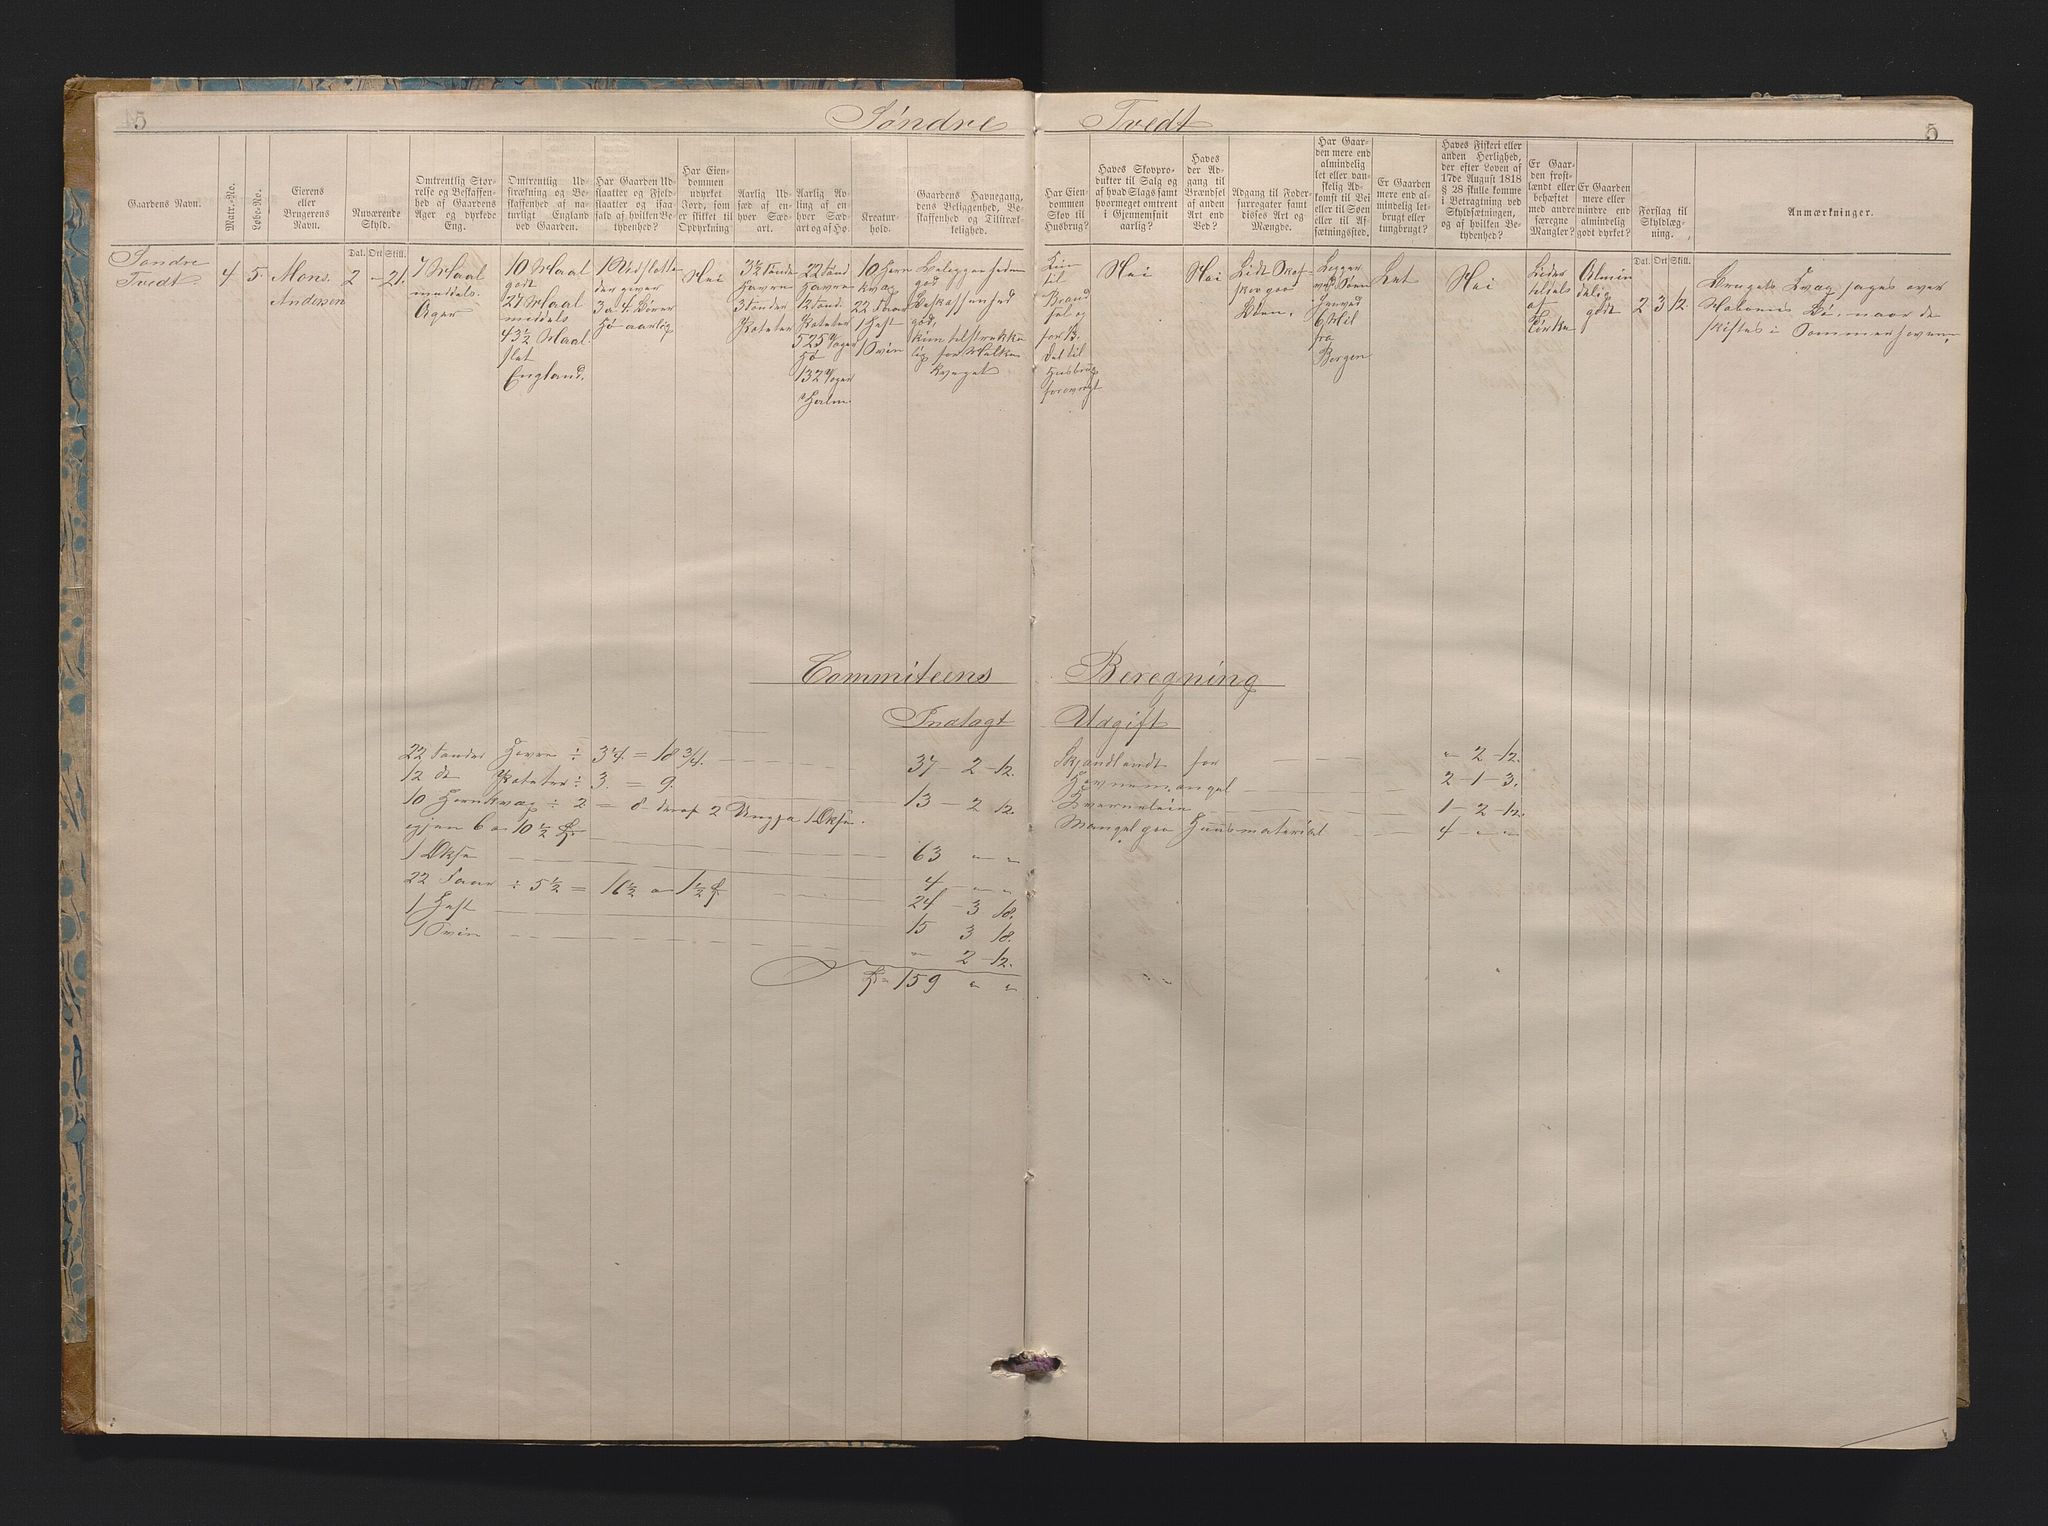 5
Søndre Tvedt
5
Gaardens Navn.
Matr.-No.
Løbe-No.
Eierens eller Brugerens Navn.
Nuværende Skyld.
Dal. Ort Skill.
Omtrentlig Størrelse og Beskaffenhed af Gaardens Ager og dyrkede Eng.
Omtrentlig Udstrækning og Beskaffenhed af naturligt England ved Gaarden.
Har Gaarden Udslaatter og Fjeldslaatter og ifaafald af hvilken Betydenhed?
Har Eiendommen udyrket Jord, som er skikket til Opdyrkning
Aarlig Udsæd af enhver Sædart.
Aarlig Avling av enhver Sædart og af Hø.
Kreaturhold.
Gaardens Havnegang, dens Beliggenhed, Beskaffenhed og Tilstrækkelighed.
Har Eiendommen Skov til Husbrug?
Haves Skovprodukter til Salg og af hvad Slags samt hvormeget omtrent i Gjennemsnit aarlig?
Haves der Adgang til Brændsel af anden Art end Ved?
Adgang til Fodersurrogater samt disses Art og Mængde.
Har Gaarden mere end almindelig let eller vanskelig Adkomst til Vei eller til Søen eller til Afsætningssted.
Er Gaarden mere end almindelig letbrugt eller tungbrugt?
Haves Fiskeri eller anden Herlighed, der efter Loven af 17de August 1818 § 28 skulle komme i Betragtning ved Skyldsætningen, og af hvilken Betydenhed?
Er Gaarden frostlændt eller behæftet med andre særegne Mangler?
Er Gaarden mere eller mindre end almindelig godt dyrket?
Forslag til Skyldlægning.
Dal. Ort Skill.
Anmærkninger.
Søndre
Tvedt
4
5
Mons
Andersen
2 - 21.
7 Maal
middels
Ager
10 Maal
godt
27 Maal
middels
43½ Maal
slet
England.
1 Udslotte
der giver
3 a 4 Börer
Hø aarlig
Nei
3½ Tønde
Havre
3 Tønder
Poteter
22 Tønd
Havre
12 Tønd.
Poteter
525 Voger
Hø
132 Voger
Halm
10 Horn
kvæg
22 Faar
1 Hest
1 Sviin
Beliggenheden
god
Beskaffenhed
god,
kun tilstrække
lig for Melke
kvæget
Kun
til
Brænd
sel og
for ⅓
Del til
Husbrug
forøvrigt
Nei
Nei
Lidt Skaf
skov og
Løv.
Ligger
ved Søen
6 Mil
fra
Bergen
Let
Nei
Lider
tildels
af
Tørke
Almin
delig
godt
2 3 12
Brugets Kvæg jages over
Naboens Bø, naar de
skiftes i Sommerhavnen.
Commiteens Beregning
Indtægt
Udgift
22 Tønder Havre ÷ 3¼ = 18 3/4. 37 - 2 - 12.
12 do Poteter ÷ 3. = 9. 13 - 2 12.
10 Hornkvæg ÷ 2 = 8 deraf 2 Ungfæ 1 Okse.
igjen 6 a 10½ 63 " "
1 Okse 4 " "
22 Faar ÷ 5½ = 16½ a 1½ 24 - 3 18.
1 Hest 15 3 18.
1 Sviin " 2 - 12.
159 " "
Skjandlændt for " 2 - 12.
Havnemangel 2 - 1 - 3.
Kverneleie 1 - 2 - 12.
Mangel paa Huusmaterial 4 - " - "